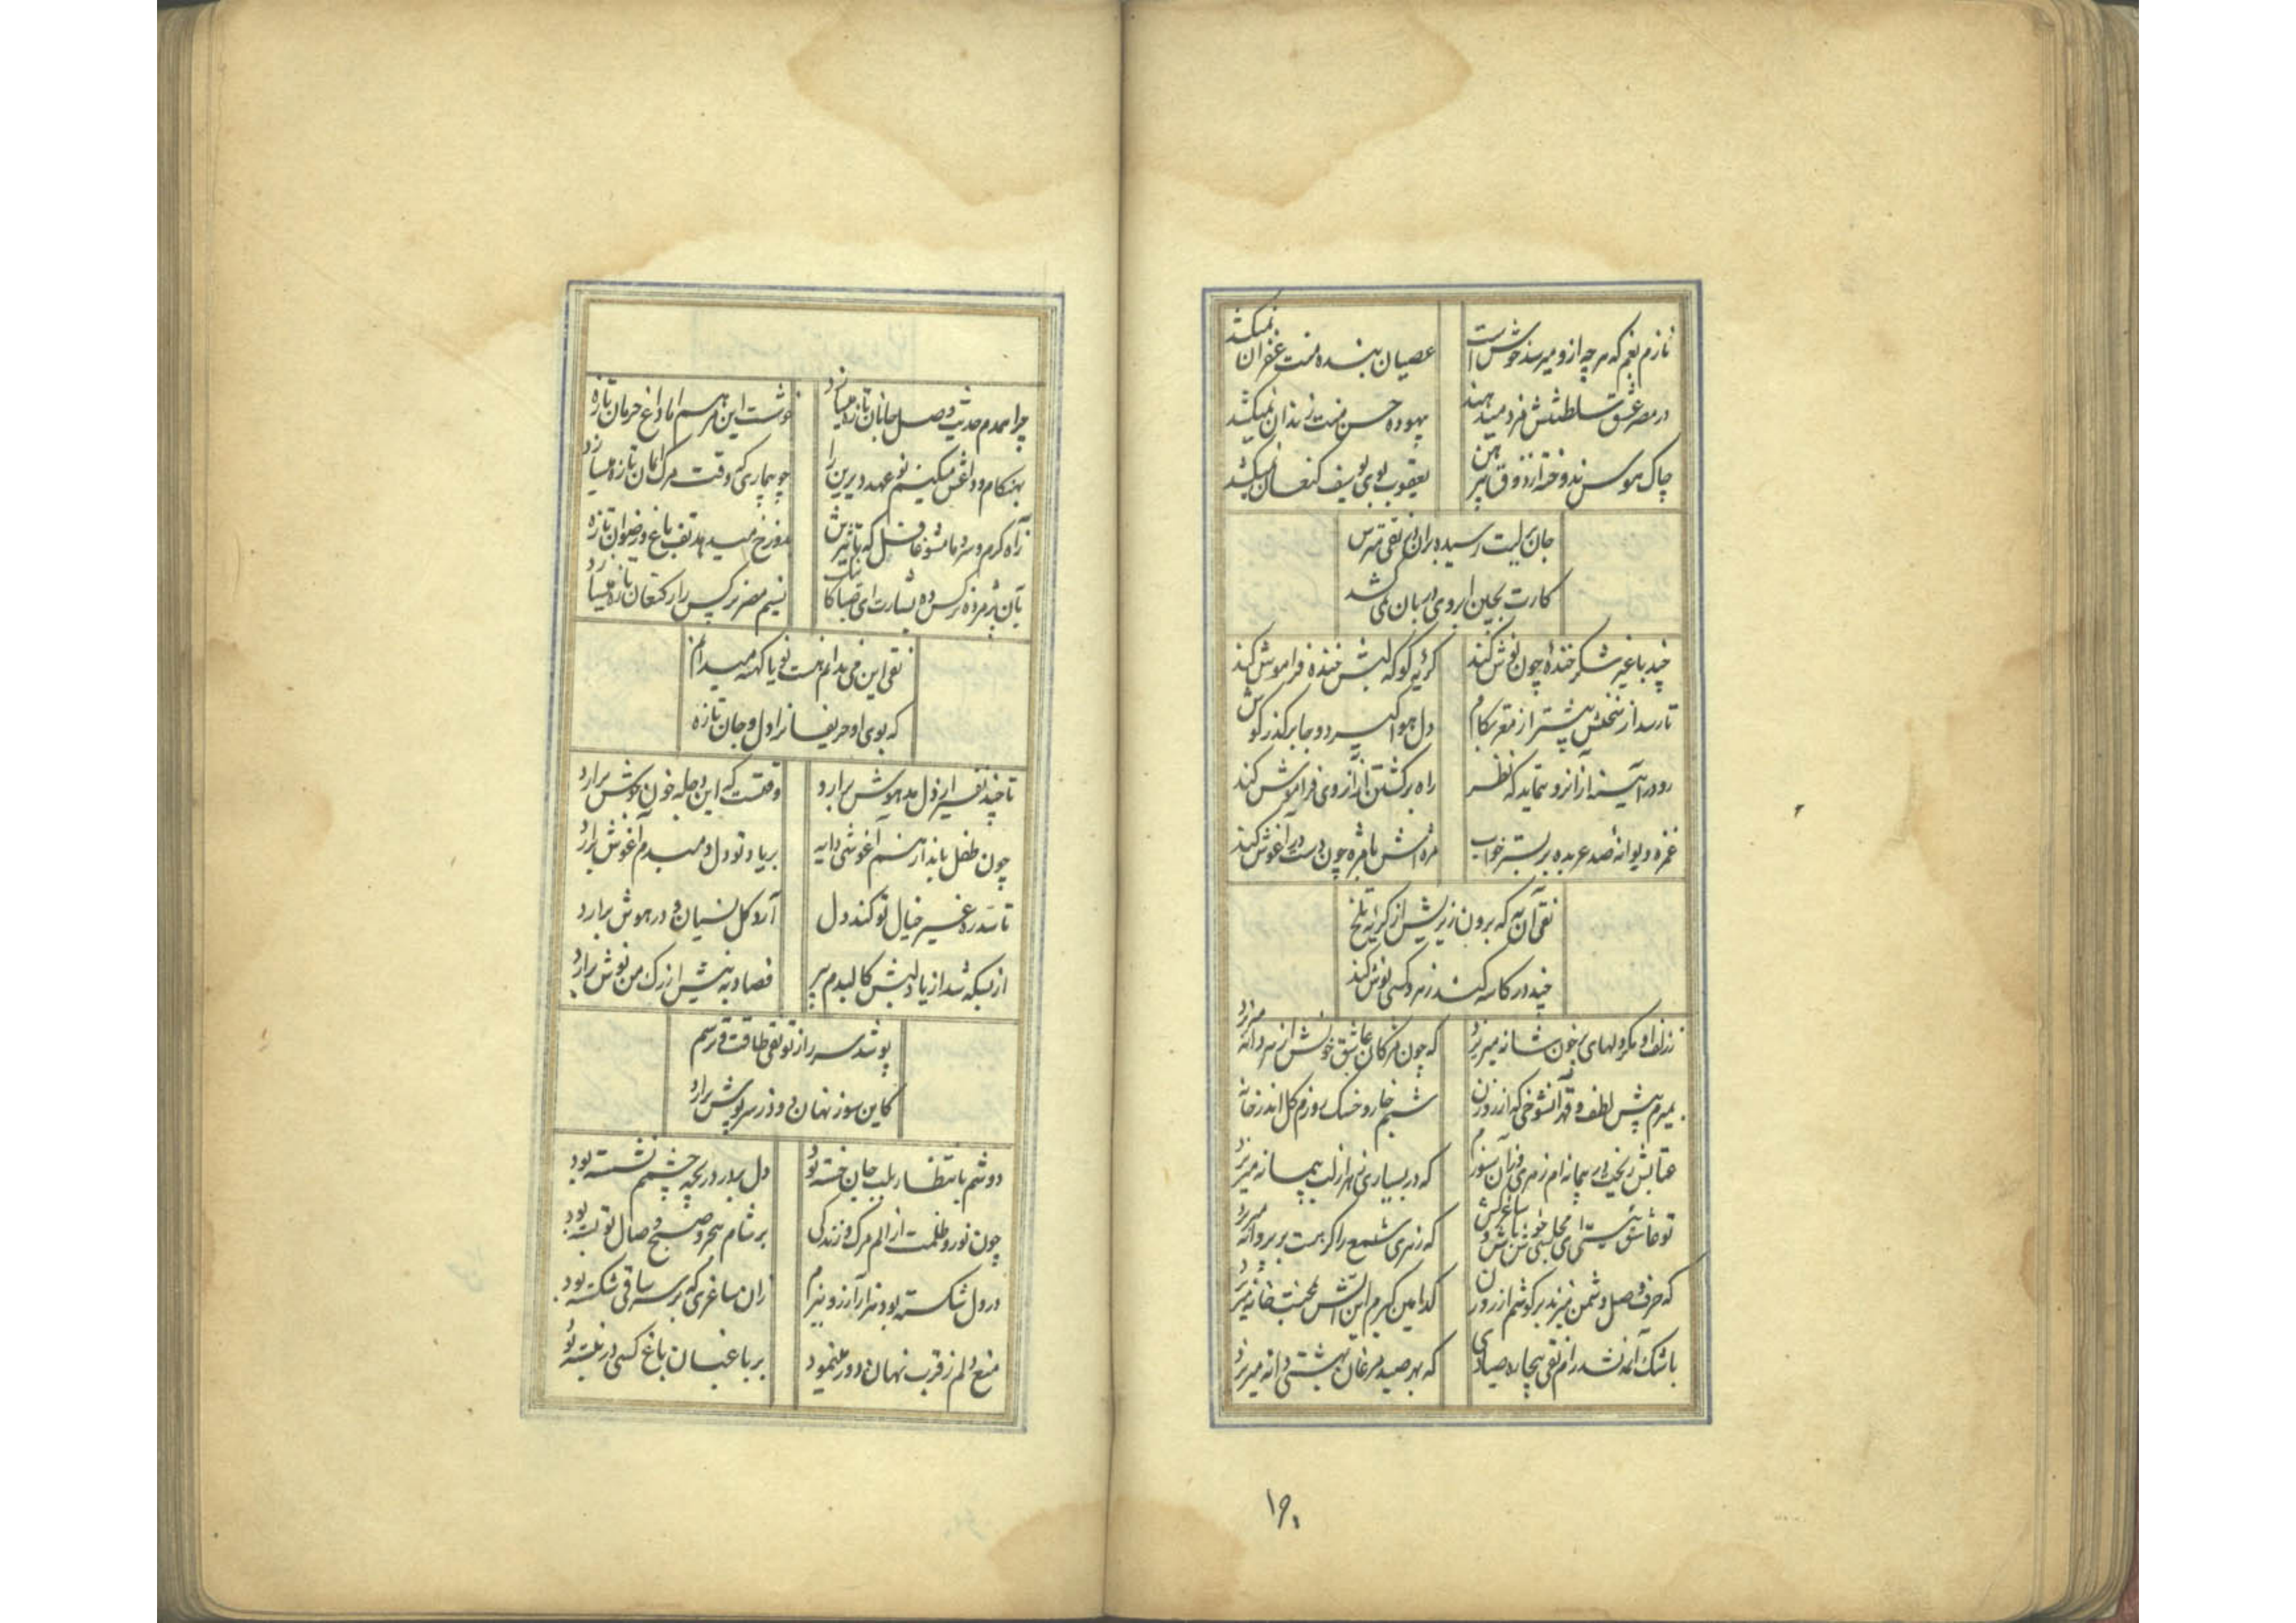 نازم بغم که هر چه ازو میرسد خوش است
عصیان بنده منت غفران نمیکشد
در مصر عشق سلطنتش مزد میدهند
بیهوده حسن منت زندان نمیکشد
چاک هوس ندوخته از ذوق پیرهن
یعقوب بوی یوسف کنعان نمیکشد
جان بر لبت رسیده بران ای نقی مترس
کارت بچین ابروی دربان نمی کشد
چند با غیر شکر خندهٔ چون نوش کند
گریه گو که لبش خنده فراموش کند
تا رسد از سخنش پیشتر از مغز بکام
دل هوا گیرد و جا بر گذر گوش کند
رو در آیینه از انرو ننماید که نظر
راه برگشتن از آن روی فراموش کند
غمزه دیوانهٔ صد عربده بر بستر خواب
مژه اش با مژه چون دست در آغوش کند
نقی آن به که برون نریزیش از گریه تلخ
چند در کاسه کند زهر و کسی نوش کند
ز زلف او مگر دلهای پر خون شانه میریزد
که چون مژگان عاشق خونش از هر دانه میریزد
بمیرم پیش لطف و قهر آنشوخی که از روزن
شبم خار و خسک روزم گل اندر خانه
عتابش ریخت در پیمانه ام زهری و زان سوزم
که در بسیاری زهر از لب پیمانه میریزد
تو عاشق نیستی ای مجلسی خوش باش و ساغر کش
که زهری شمع را گر هست بر پروانه میریزد
که حرف وصل دشمن میزند بر گوشم از روزن
کدامین گبرم این آتش بمحنت خانه میریزد
باشک آمد نشد رام نقی بیچاره صیادی
که بهر صید مرغان بهشتی دانه میریزد
۱۶۰
چرا همدم حدیث وصل جانان تازه میسازد
خوشست این مرهم اما داغ حرمان تازه
بهنگام وداعش میکنم نو عهد دیرین را
چو بیماری که وقت مرگ ایمان تازه میسازد
ز آه گرم و سرد ما مشو غافل که تاثیرش
بدوزخ میدهد تف باغ رضوان تازه
بآن پژمرده نرگس ده بشارت ای صبا کاینک
نسیم مصر نرگس را ز کنعان تازه میسازد
نقی این می ندانم هست نو یا کهنه میدانم
که بوی او حریفانرا دل و جان تازه
تا چند نفس از دل مدهوش برارد
وقتست که این دجله خون جوش برارد
چون طفل باندازه هم آغوشی دایه
بر یاد تو دل دمبدم آغوش برارد
تا سد ره غیر خیال تو کند دل
آرد گل نسیان و در هوش برارد
از بسکه شد از یاد لبش کالبدم پر
فصاد به نیش از رگ من نوش برارد
پوشد سر راز تو نقی طاقت و ترسم
کاین سوز نهان دود ز سرپوش برارد
دوشم بانتظار بلب جان خسته بود
دل بر در دریچه چشمم نشسته بود
چون نور و ظلمت از الم مرگ و زندگی
بر شام هجر و صبح وصال تو بسته بود
در دل شکسته بود هزار آرزو ببزم
زان ساغری که بر سر ساقی شکسته بود
منع دلم ز قرب نهان دور مینمود
بر باغبان باغ کسی در نبسته بود